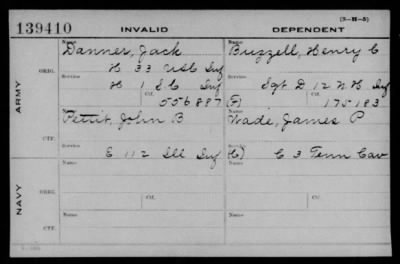 (3-H-5)
139410 INVALID DEPENDENT
Name Name
Danner, Jack Buzzell, Henry C
ARMY
ORIG. Service Service
H 33 USC Inf Sgt D 12 N H Inf
H 1 S.C Inf
Ctf. Ctf.
556887 (F) 175183
Name Name
Pettit, John B Wade, James P
CTF. Service
E 112 Ill Inf C) C 3 Tenn Cav
Name Name
NAVY
ORIG.
Service Ctf. Service Ctf.
Name Name
CTF.